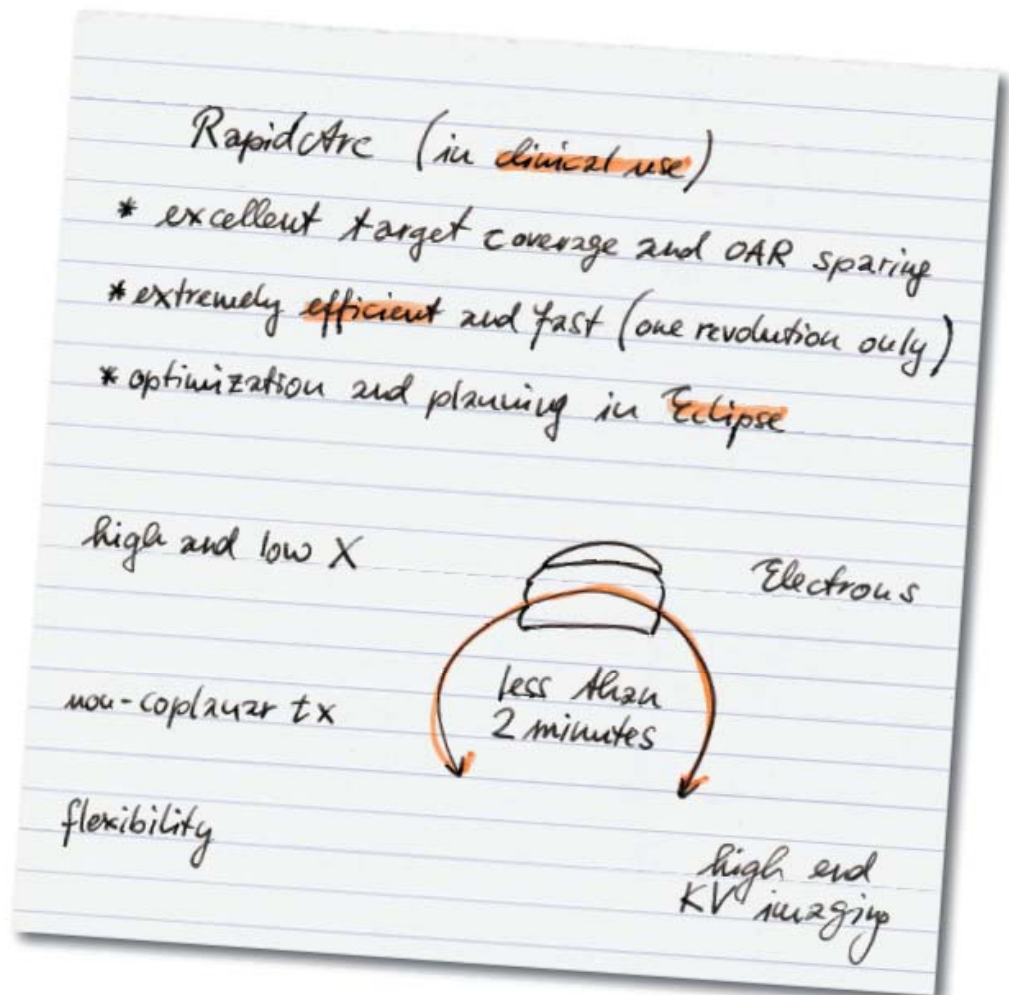 RapidArc (in clinical use)
* excellent target coverage and OAR sparing
* extremely efficient and fast (one revolution only)
* optimization and planning in Eclipse
high and low X
Electrons
less than
2 minutes
non-coplanar tx
flexibility
high end
KV imaging